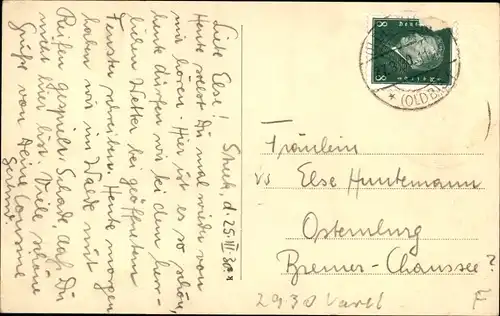 Stuh, d. 25. III. 30.
Liebe Else!
Heute sollst Du mal wieder von
mir hören. Hier ist es so schön,
heute dürfen wir bei dem herr-
lichen Wetter bei geöffnetem
Fenster schreiben. Heute morgen
haben wir im Walde mit
Reifen gespielt. Schade, daß Du
nicht hier bist. Viele schöne
Grüße von Deine Cousine
Gerlind.
8
8
(OLDB)
Fräulein
Else Huntemann
Osternburg
Bremer-Chaussee ?
2930 Varel